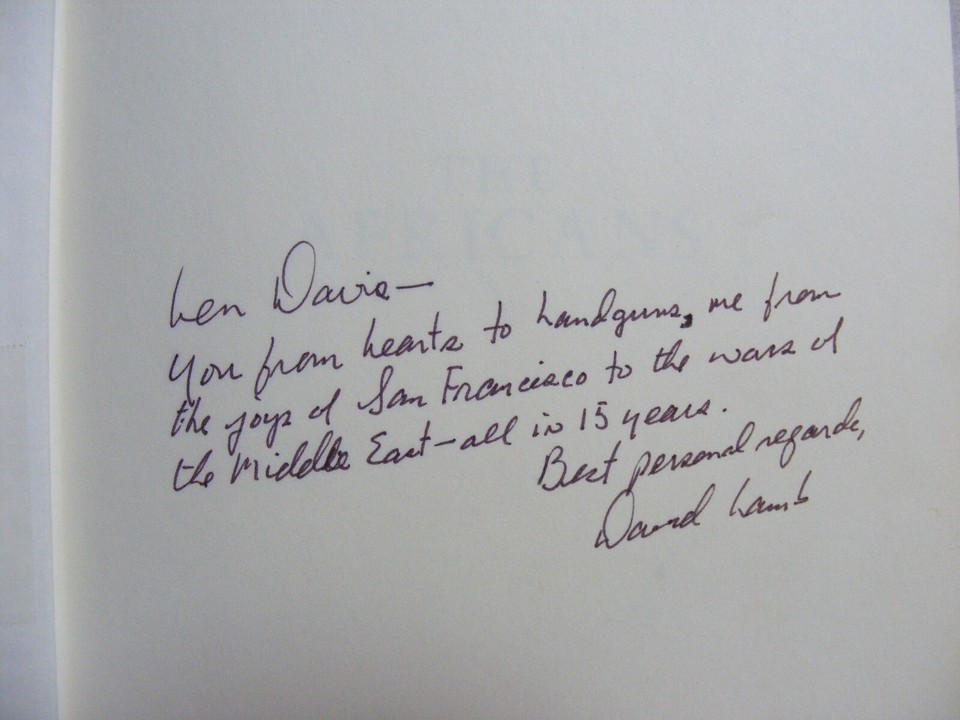 THE
AFRICANS
Len Davis—
You from hearts to handguns, me from
the joys of San Francisco to the wars of
the Middle East—all in 15 years.
Best personal regards,
David Lamb